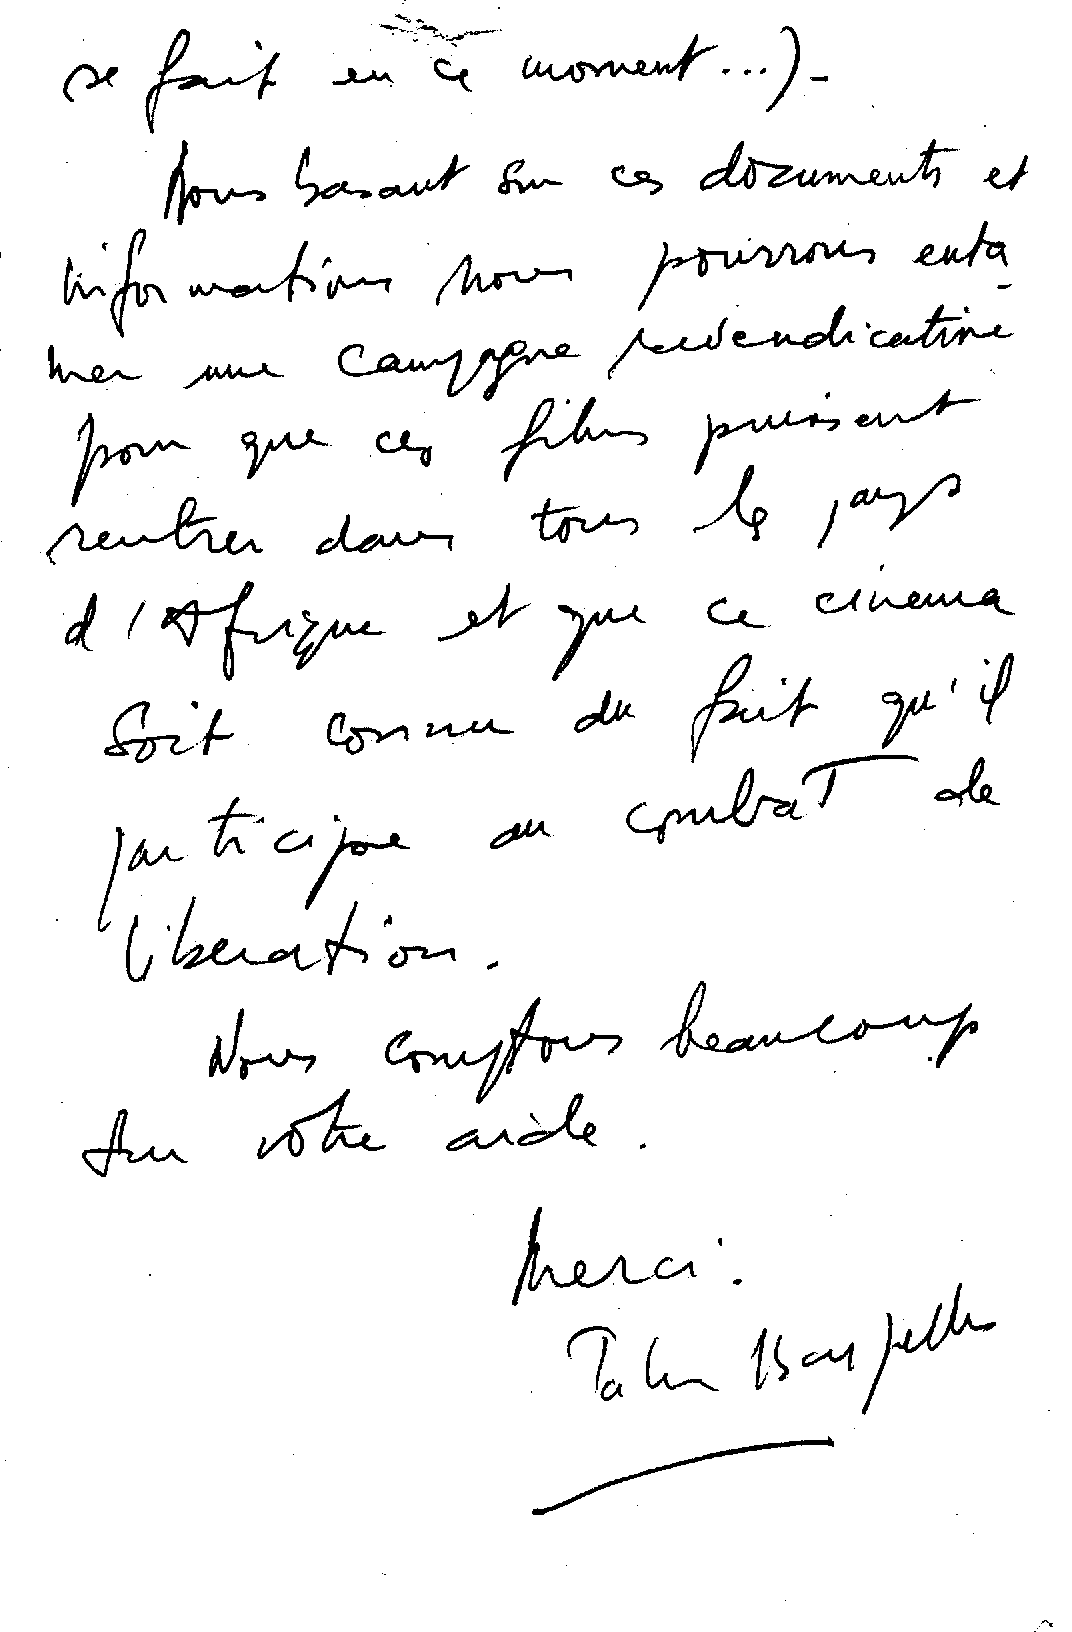 se fait en ce moment...).
Nous basant sur ces documents et
informations nous pourrons enta-
mer une campagne revendicative
pour que ces films puissent
rentrer dans tous les pays
d'Afrique et que ce cinema
soit connu du fait qu'il
participe au combat de
libération.
Nous comptons beaucoup
sur votre aide.
Merci.